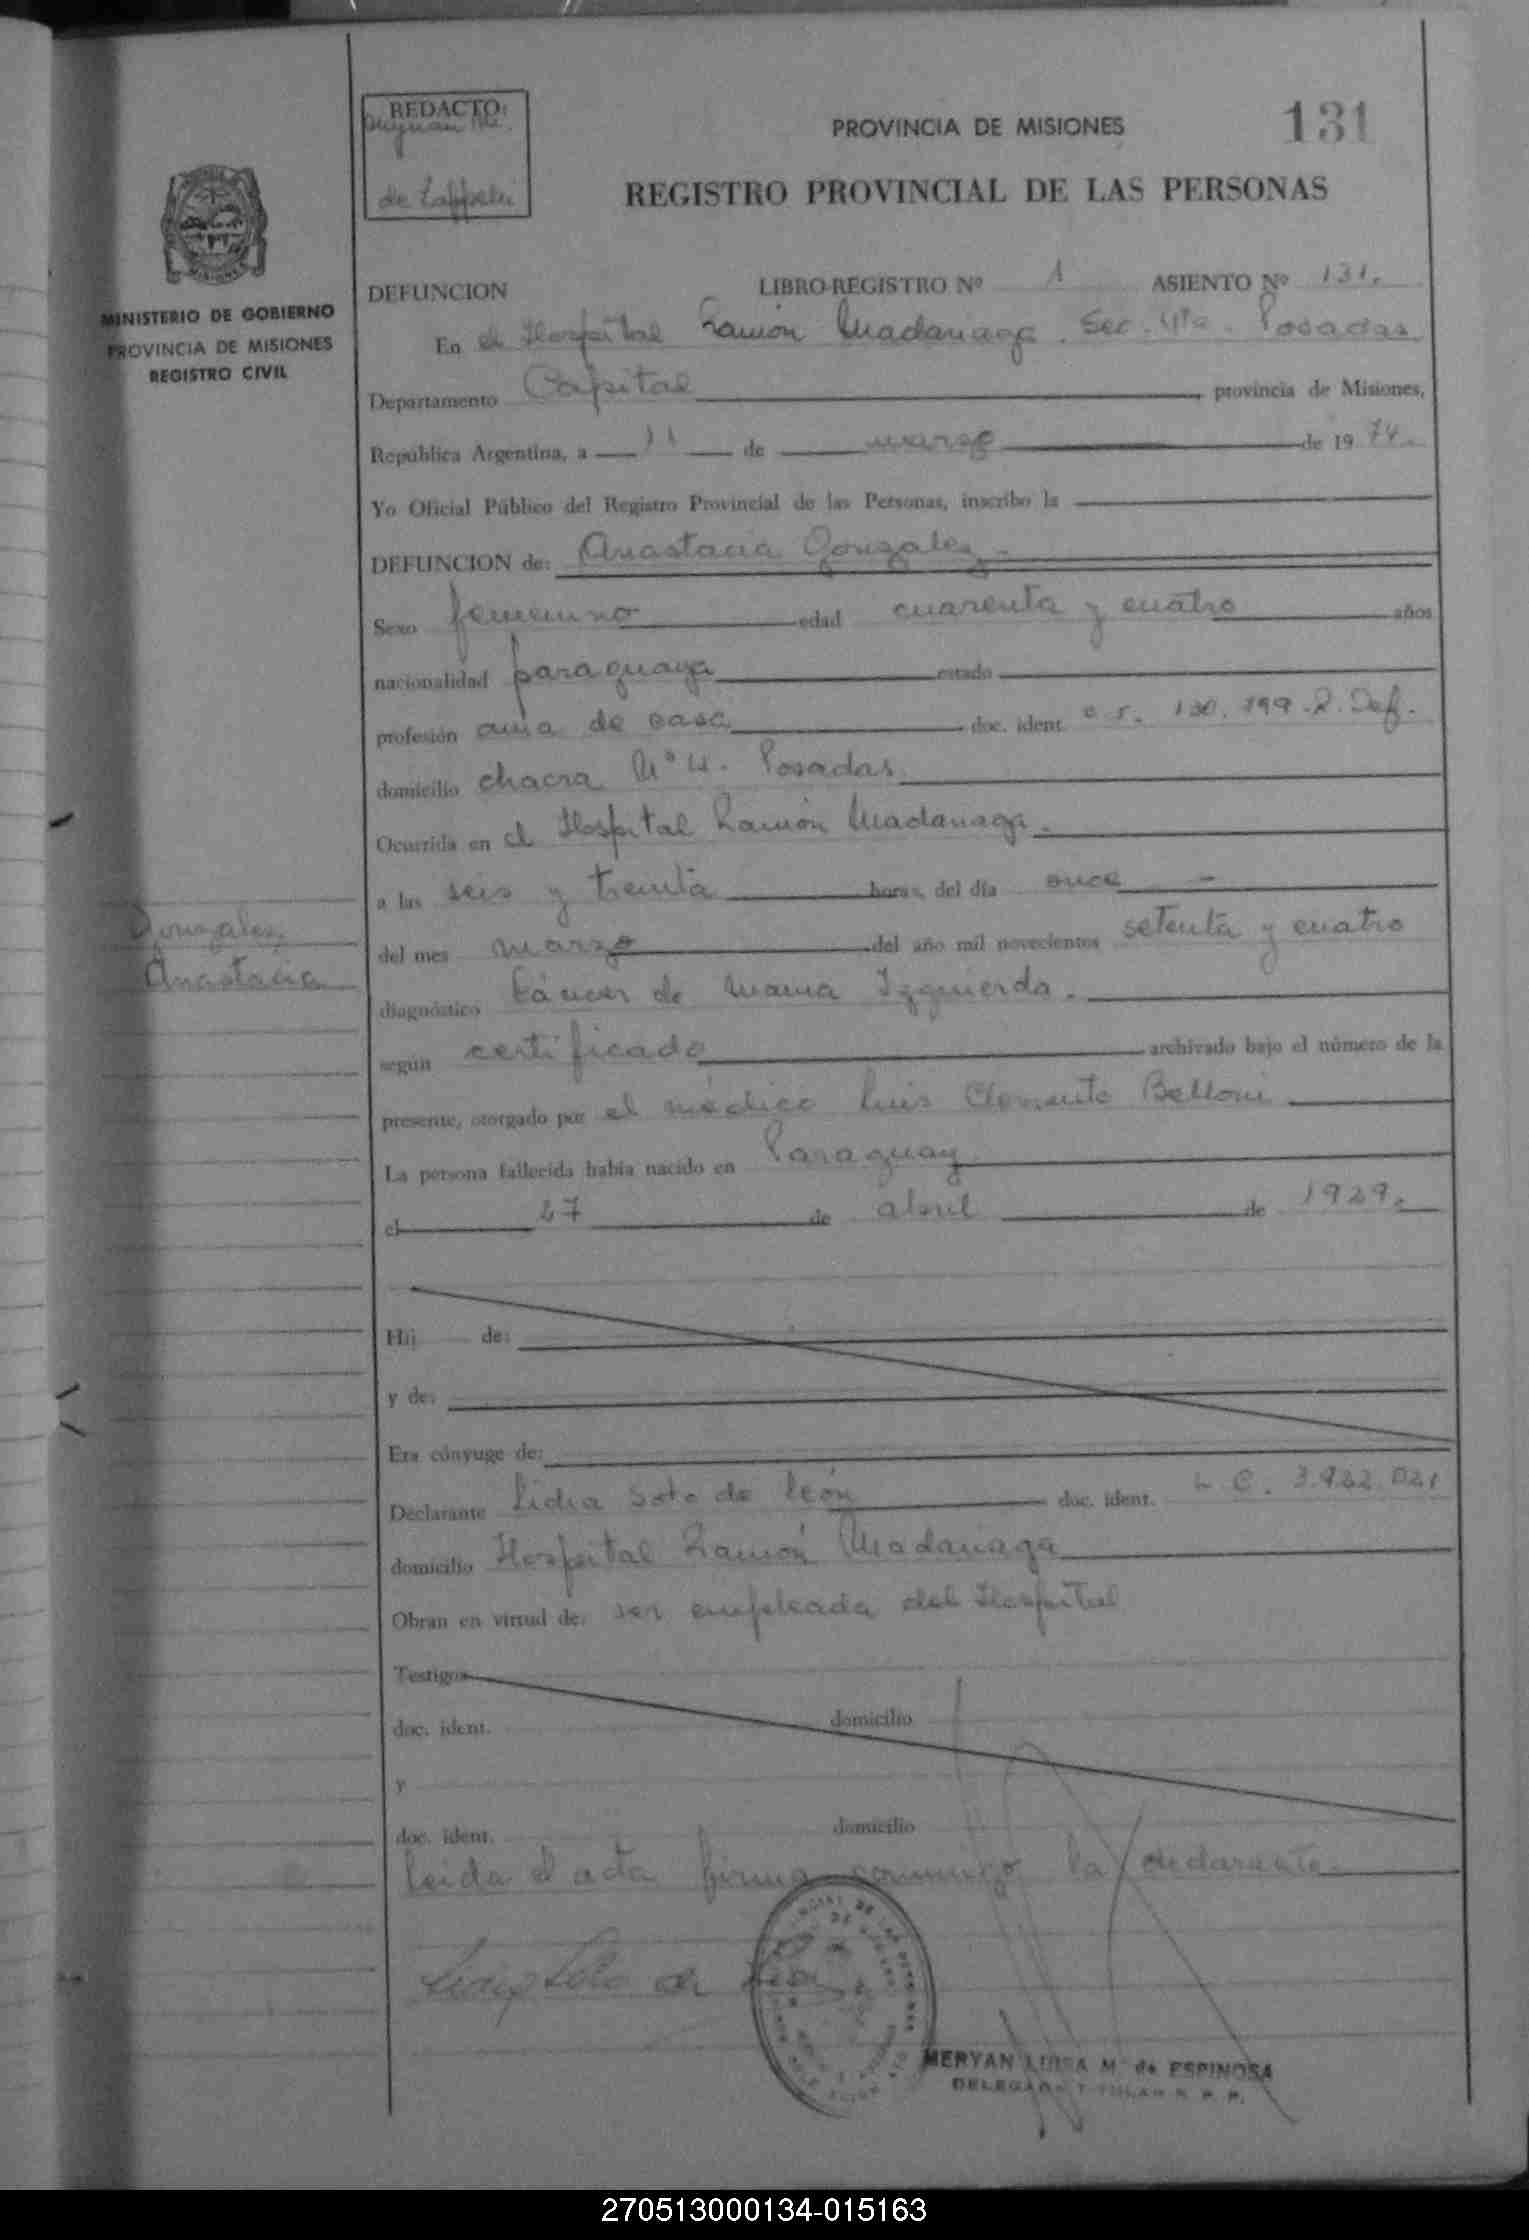 REDACTO:
PROVINCIA DE MISIONES
131
REGISTRO PROVINCIAL DE LAS PERSONAS
MISIONES
MINISTERIO DE GOBIERNO
PROVINCIA DE MISIONES
REGISTRO CIVIL
DEFUNCION LIBRO-REGISTRO Nº 1 ASIENTO Nº 131.
En el Hospital Ramón Madariaga. Sec. 4ta. Posadas
Departamento Capital provincia de Misiones,
República Argentina, a 11 de marzo de 19 74.
Yo Oficial Público del Registro Provincial de las Personas, inscribo la
DEFUNCION de: Anastacia Gonzalez
Sexo femenino edad cuarenta y cuatro años
nacionalidad paraguaya estado
profesión ama de casa doc. ident. 130.199. Def.
domicilio chacra Nº Posadas.
Ocurrida en el Hospital Ramón Madariaga.
a las seis y treinta horas, del día once
del mes marzo del año mil novecientos setenta y cuatro
Gonzalez,
Anastacia
diagnóstico Cáncer de mama Izquierda.
según certificado archivado bajo el número de la
presente, otorgado por el médico Luis Clemente Belloni
La persona fallecida había nacido en Paraguay
el 27 de abril de 1929.
Hij de:
y de:
Era cónyuge de:
Declarante Lidia Soto de León doc. ident. L C. 3.922.021
domicilio Hospital Ramón Madariaga
Obran en virtud de: ser empleada del Hospital
Testigos
doc. ident. domicilio
y
doc. ident. domicilio
leida el acta firma conmigo la declarante
MERYAN LUISA M. de ESPINOSA
DELEGADA TITULAR R. P. P.
270513000134-015163